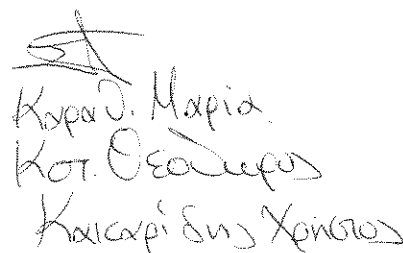 Καραθ. Μαρία
Κστ. Θεόδωρος
Καισαρίδης Χρήστος